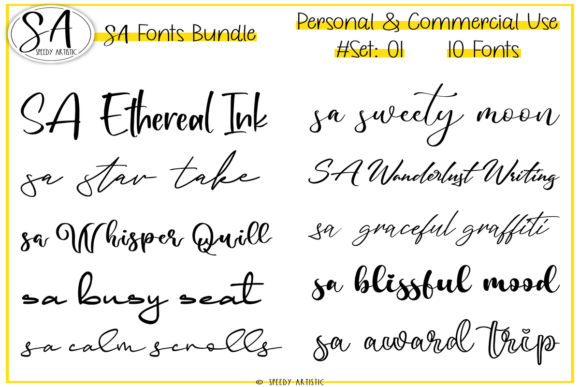 SA
SPEEDY ARTISTIC
SA Fonts Bundle
Personal & Commercial Use
#Set: 01 10 Fonts
SA Ethereal Ink
sa star take
sa Whisper Quill
sa busy seat
sa calm scrolls
sa sweety moon
SA Wanderlust Writing
sa graceful graffiti
sa blissful mood
sa award trip
© SPEEDY ARTISTIC